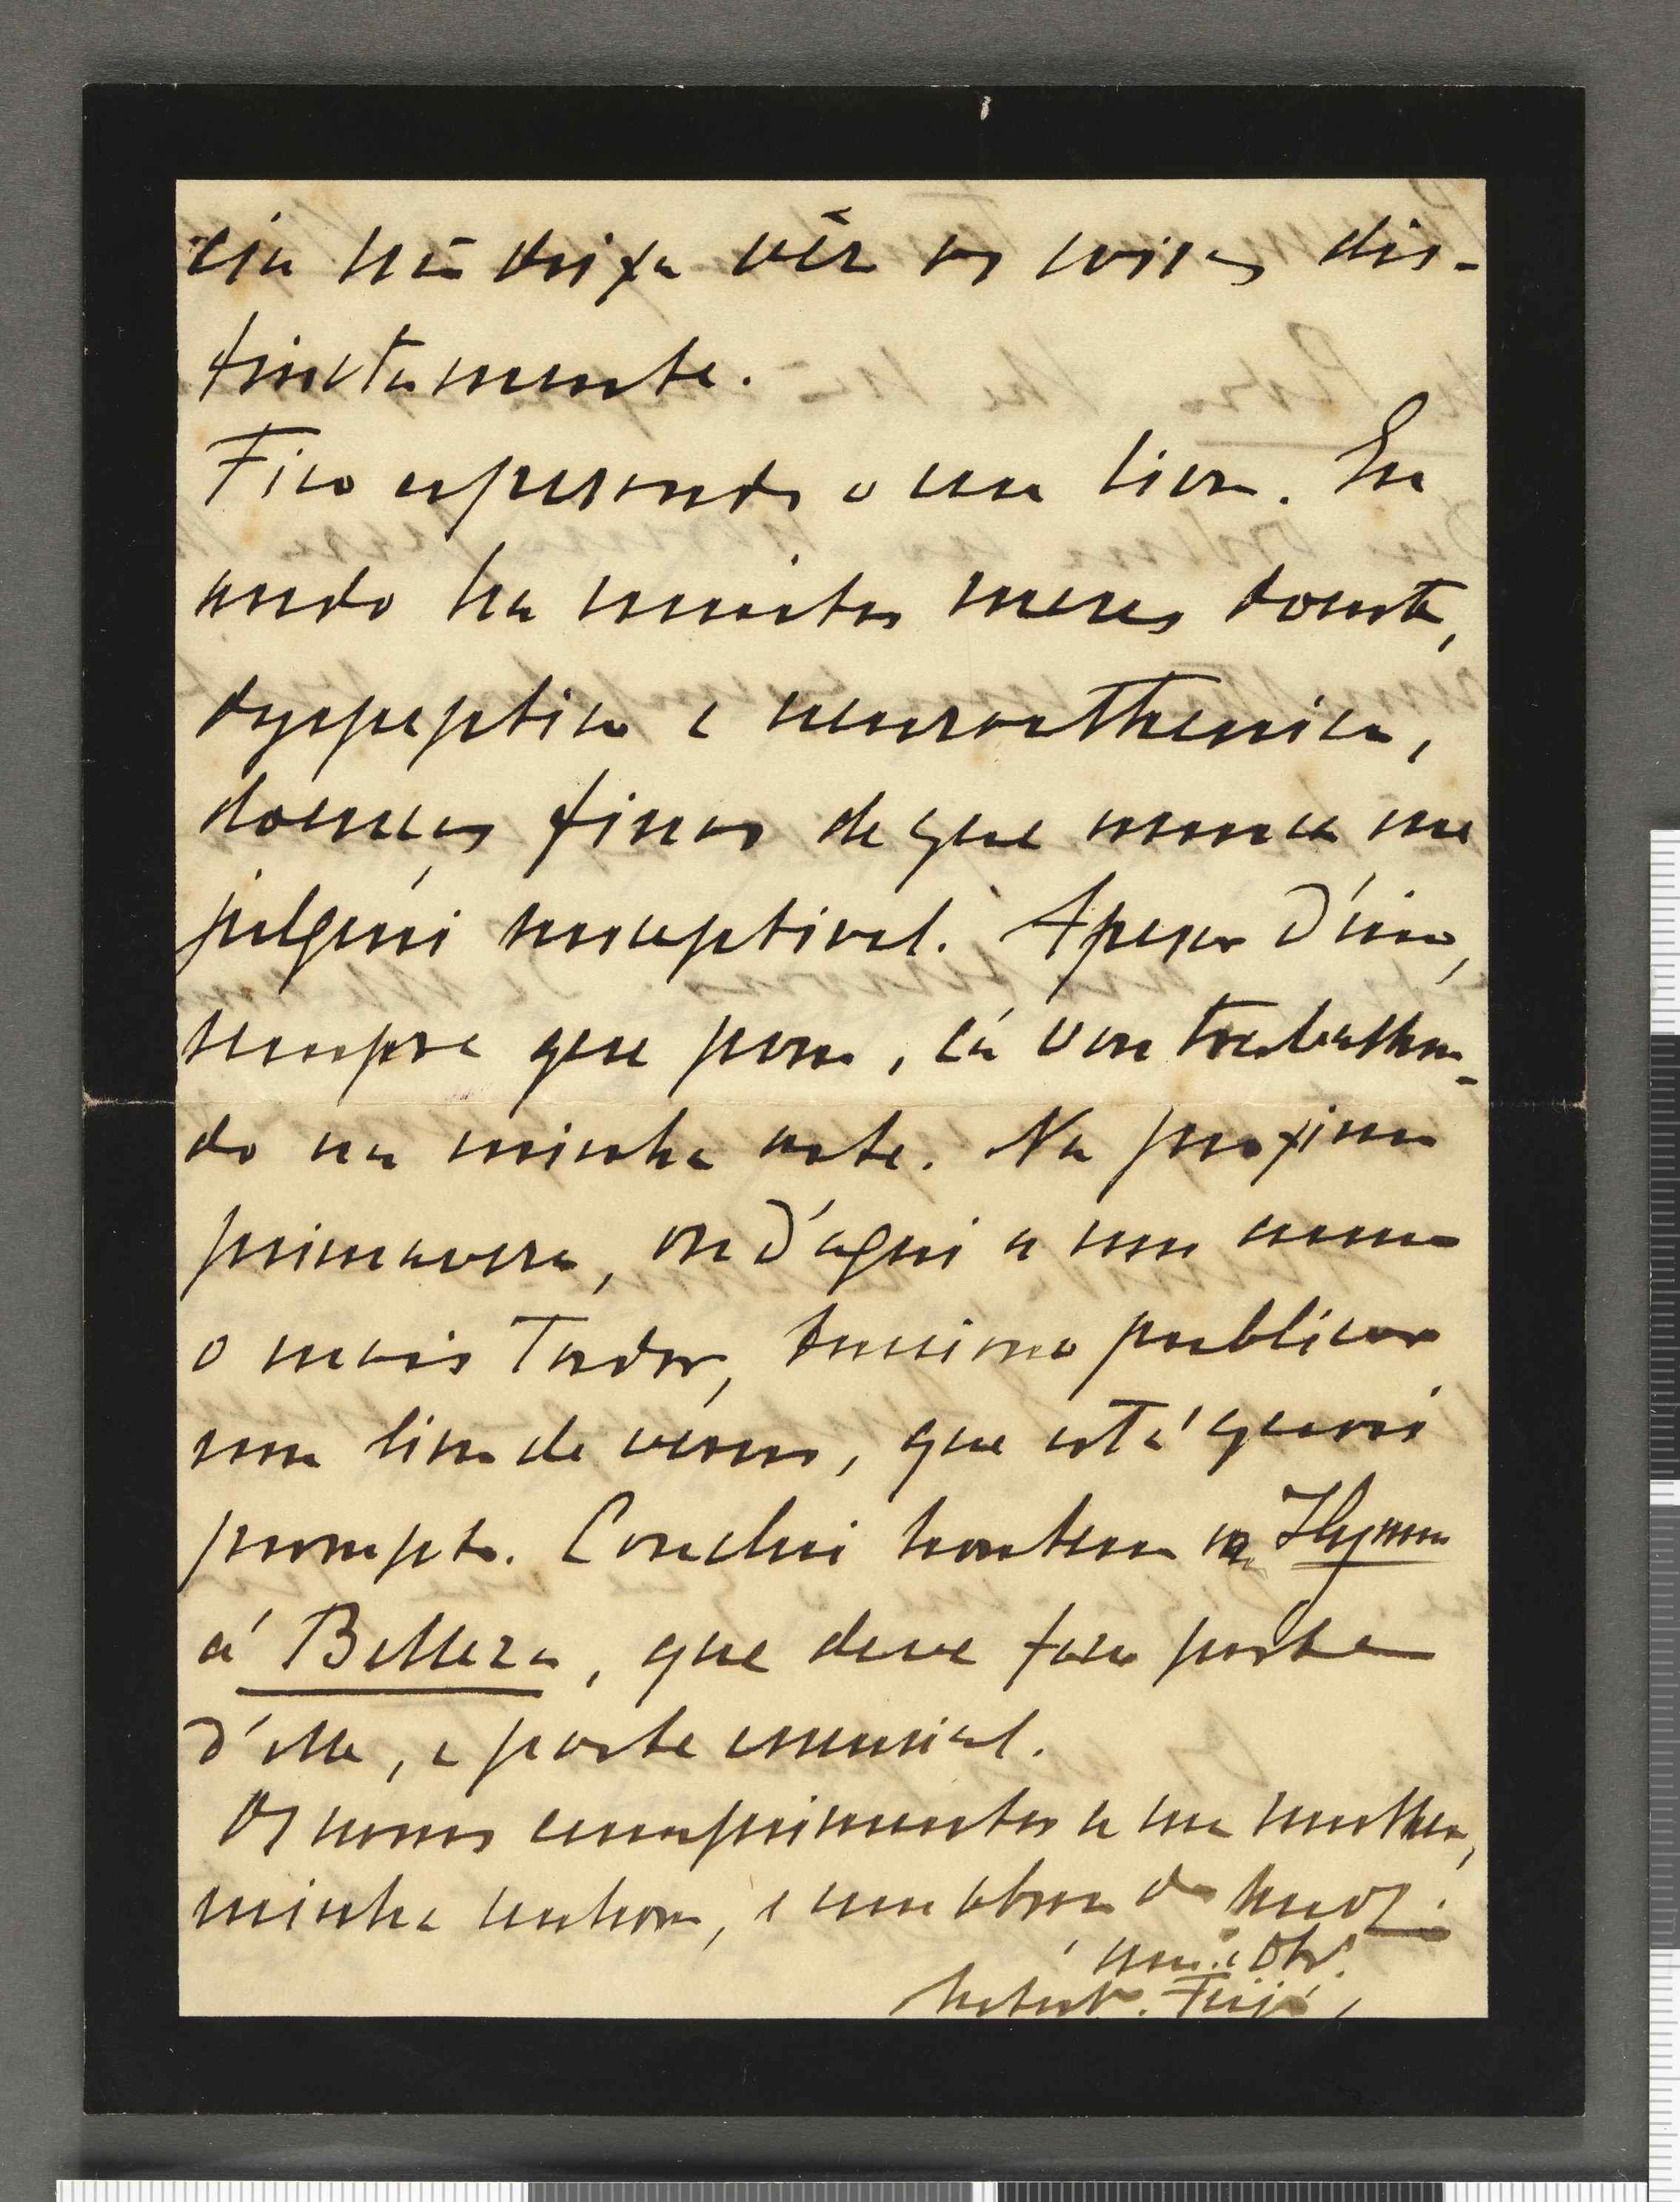 cia não deixa vêr as coisas dis-
tinctamente.
Fico esperando o seu livro. Eu
ando ha muitos mezes doente,
dyspeptico e neurasthenico,
doenças finas de que nunca me
julguei susceptivel. Apesar d'isso,
sempre que posso, cá vou trabalhan-
do na minha arte. Na proxima
primavera, ou d'aqui a um anno
o mais tardar, tenciono publicar
um livro de versos, que está quasi
prompto. Conclui hontem o Hymno
á Belleza, que deve fazer parte
d'elle, e parte essencial.
Os nossos cumprimentos a sua mulher,
minha senhora, e um abraço do seu
am. e Obr.
Feijó